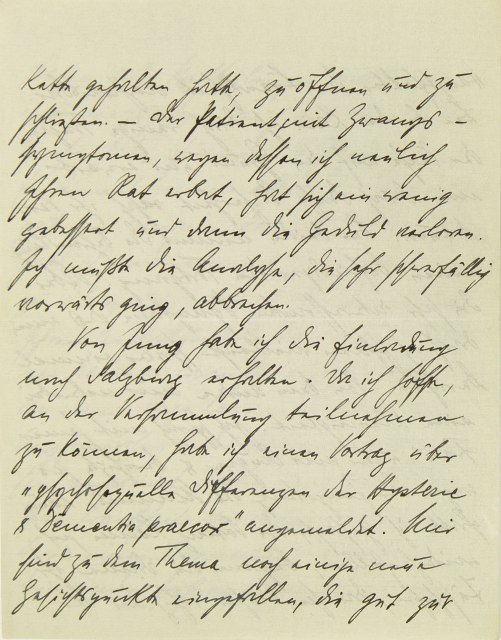 Kette gehalten hatte, zu öffnen und zu
schließen. — Der Patient mit Zwangs-
symptomen, wegen dessen ich neulich
Ihren Rat erbat, hat sich ein wenig
gebessert und dann die Geduld verloren.
Ich mußte die Analyse, die sehr schwerfällig
vorwärts ging, abbrechen.
Von Jung habe ich die Einladung
nach Salzburg erhalten. Da ich hoffe,
an der Versammlung teilnehmen
zu können, habe ich einen Vortrag über
„psychosexuelle Differenzen der Hysterie
& Dementia praecox" angemeldet. Mir
sind zu dem Thema noch einige neue
Gesichtspunkte eingefallen, die gut zur